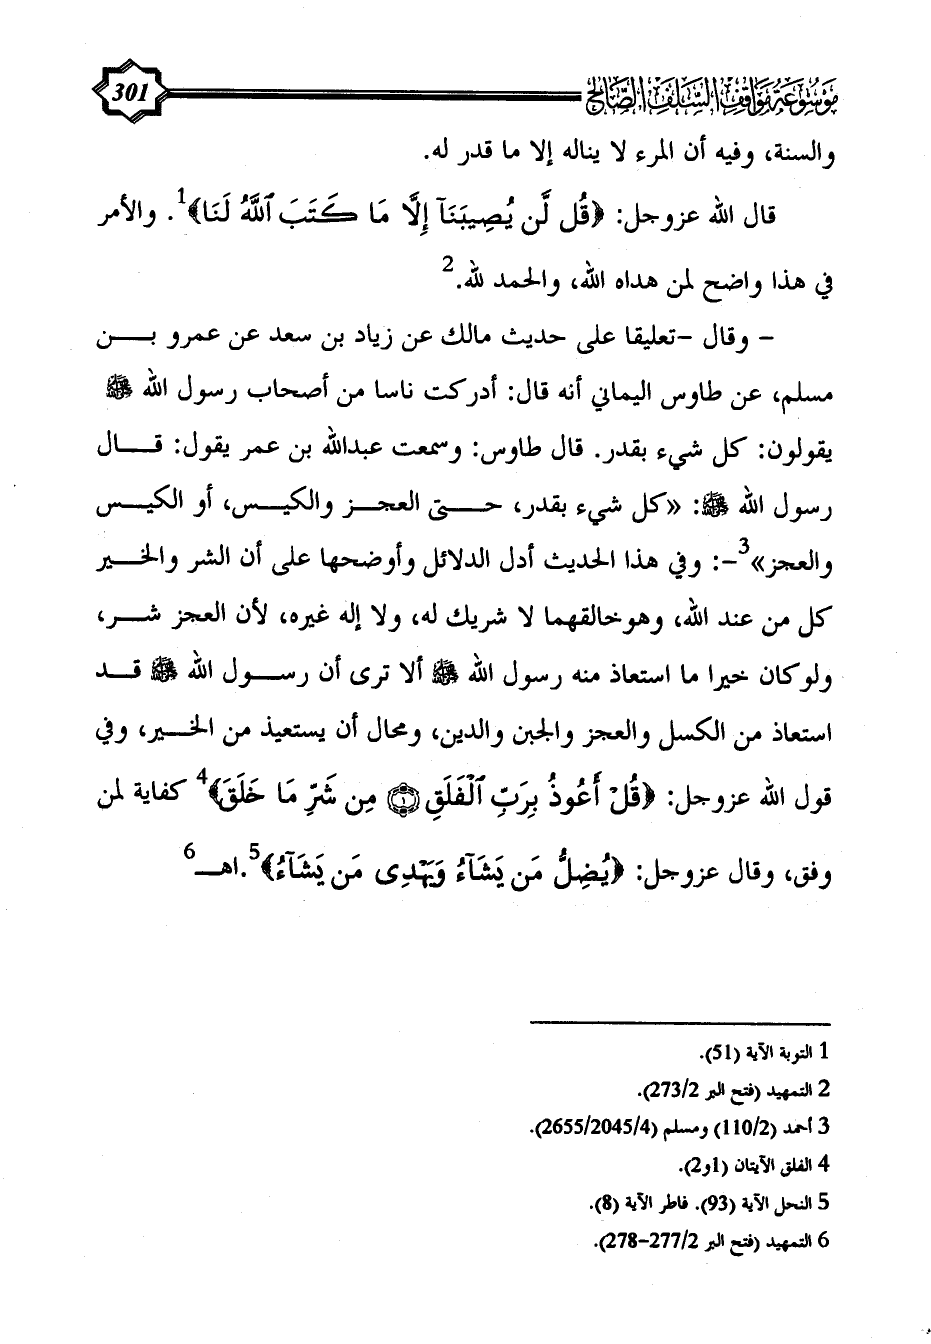 موسوعة مواقف السلف الصالح
301
والسنة، وفيه أن المرء لا يناله إلا ما قدر له.
قال الله عزوجل: ﴿قُل لَّن يُصِيبَنَآ إِلَّا مَا كَتَبَ ٱللَّهُ لَنَا﴾1. والأمر
في هذا واضح لمن هداه الله، والحمد لله.2
– وقال –تعليقا على حديث مالك عن زياد بن سعد عن عمرو بــن
مسلم، عن طاوس اليماني أنه قال: أدركت ناسا من أصحاب رسول الله ﷺ
يقولون: كل شيء بقدر. قال طاوس: وسمعت عبدالله بن عمر يقول: قــال
رسول الله ﷺ: «كل شيء بقدر، حــتى العجــز والكيــس، أو الكيــس
والعجز»3–: وفي هذا الحديث أدل الدلائل وأوضحها على أن الشر والخــير
كل من عند الله، وهوخالقهما لا شريك له، ولا إله غيره، لأن العجز شــر،
ولوكان خيرا ما استعاذ منه رسول الله ﷺ ألا ترى أن رســول الله ﷺ قــد
استعاذ من الكسل والعجز والجبن والدين، ومحال أن يستعيذ من الخــير، وفي
قول الله عزوجل: ﴿قُلْ أَعُوذُ بِرَبِّ ٱلْفَلَقِ ۝١ مِن شَرِّ مَا خَلَقَ﴾4 كفاية لمن
وفق، وقال عزوجل: ﴿يُضِلُّ مَن يَشَآءُ وَيَهْدِى مَن يَشَآءُ﴾5.اهــ6
1 التوبة الآية (51).
2 التمهيد (فتح البر 273/2).
3 أحمد (110/2) ومسلم (2655/2045/4).
4 الفلق الآيتان (1و2).
5 النحل الآية (93). فاطر الآية (8).
6 التمهيد (فتح البر 277/2–278).